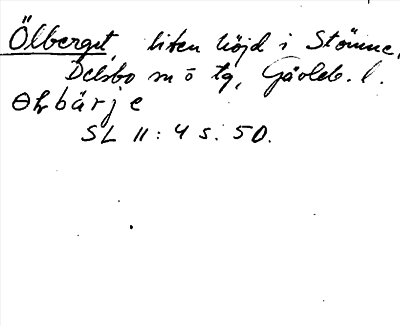 Ölberget, liten höjd i Stömne,
Delsbo sn o tg, Gävleb. l.
Ɵɫbärje
SL 11:4 s. 50.